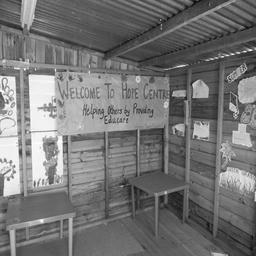 WELCOME TO HOPE CENTRE
Helping Others by Providing
Educare